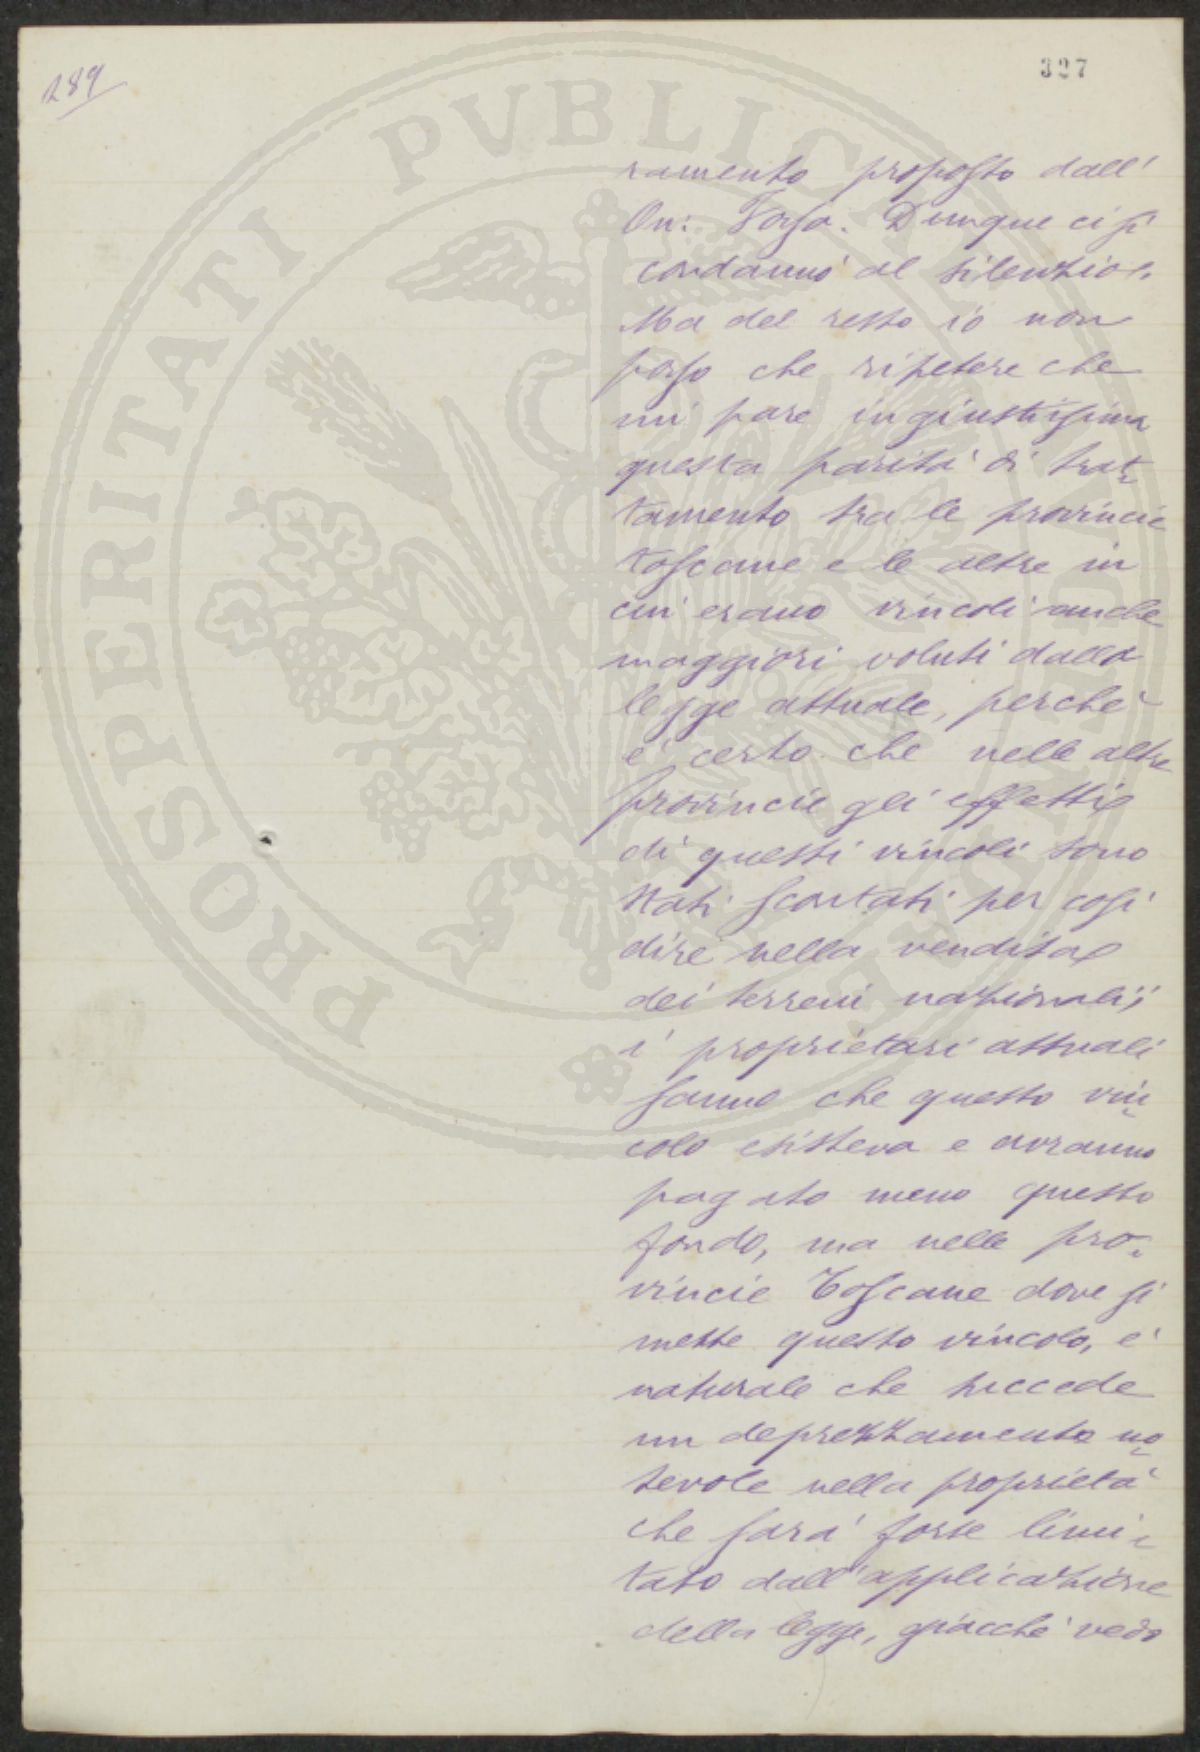 289
327
PROSPERITATI PUBLICAE
ramento proposto dall'
On: Tosa. Dunque ci si
condannò al silenzio.
Ma del resto io non
posso che ripetere che
mi pare ingiustissima
questa parità di trat-
tamento tra le provincie
toscane e le altre in
cui erano vincoli anche
maggiori voluti dalla
legge attuale, perchè
è certo che nelle altre
provincie gli effetti
di questi vincoli sono
stati scontati per così
dire nella vendita
dei terreni nazionali;
i proprietari attuali
sanno che questo vin-
colo esisteva e avranno
pagato meno questo
fondo, ma nelle pro-
vincie Toscane dove si
mette questo vincolo, è
naturale che succede
un deprezzamento no-
tevole nella proprietà
che sarà forse limi-
tato dall'applicazione
della legge, giacchè vedo